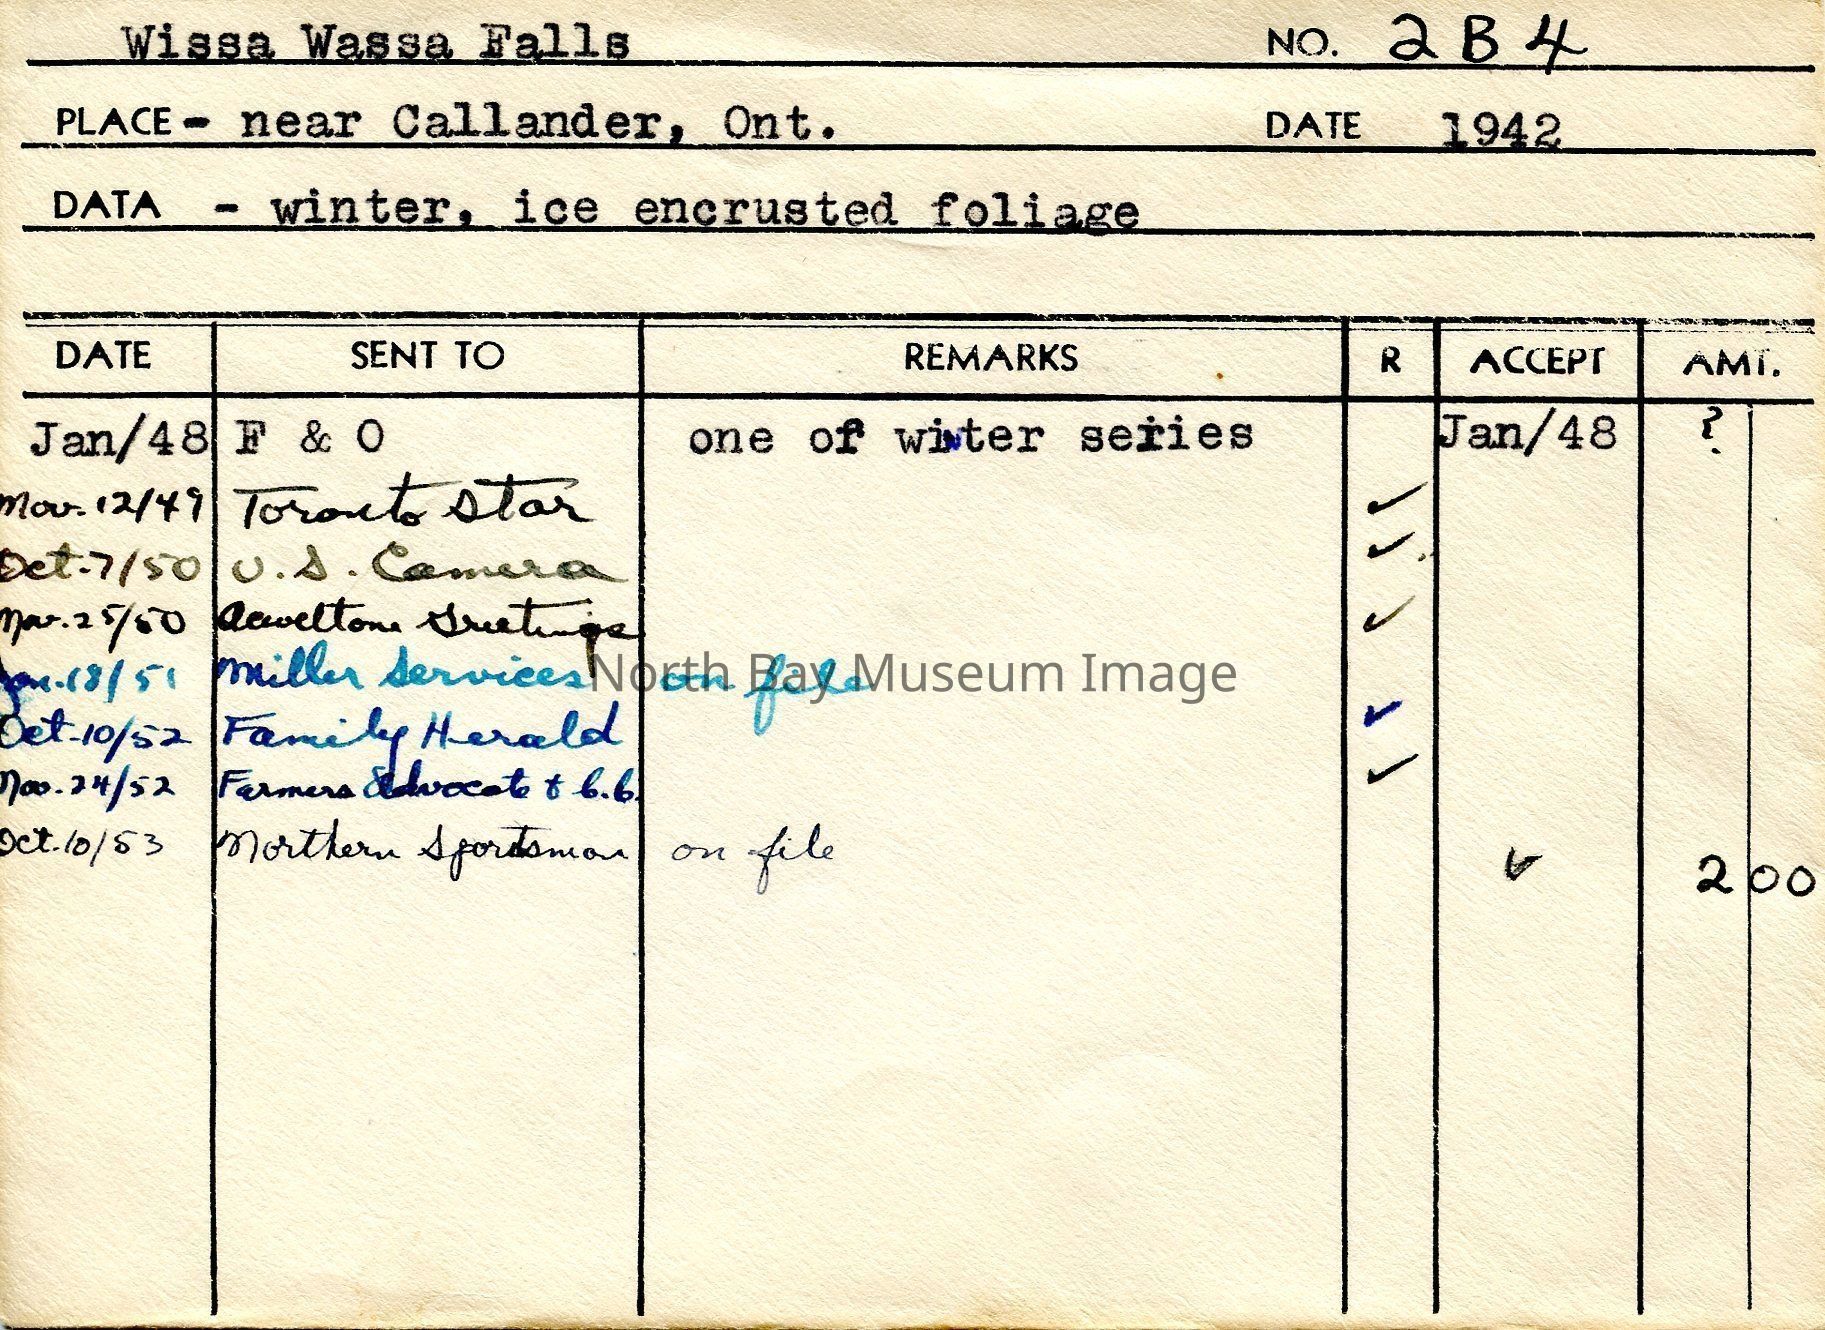 Wissa Wassa Falls NO. 2B4
PLACE - near Callander, Ont. DATE 1942
DATA - winter, ice encrusted foliage
DATE SENT TO REMARKS R ACCEPT AMT.
Jan/48 F & O one of winter series Jan/48 ?
Nov. 12/49 Toronto Star ✓
Oct-7/50 U.S. Camera ✓
Nov. 25/50 Greetings ✓
Jan. 18/51 Miller Services on file
North Bay Museum Image
Oct-10/52 Family Herald ✓
Nov. 24/52 Farmers Advocate & ✓
Oct. 10/53 Northern Sportsman on file ✓ 2 00